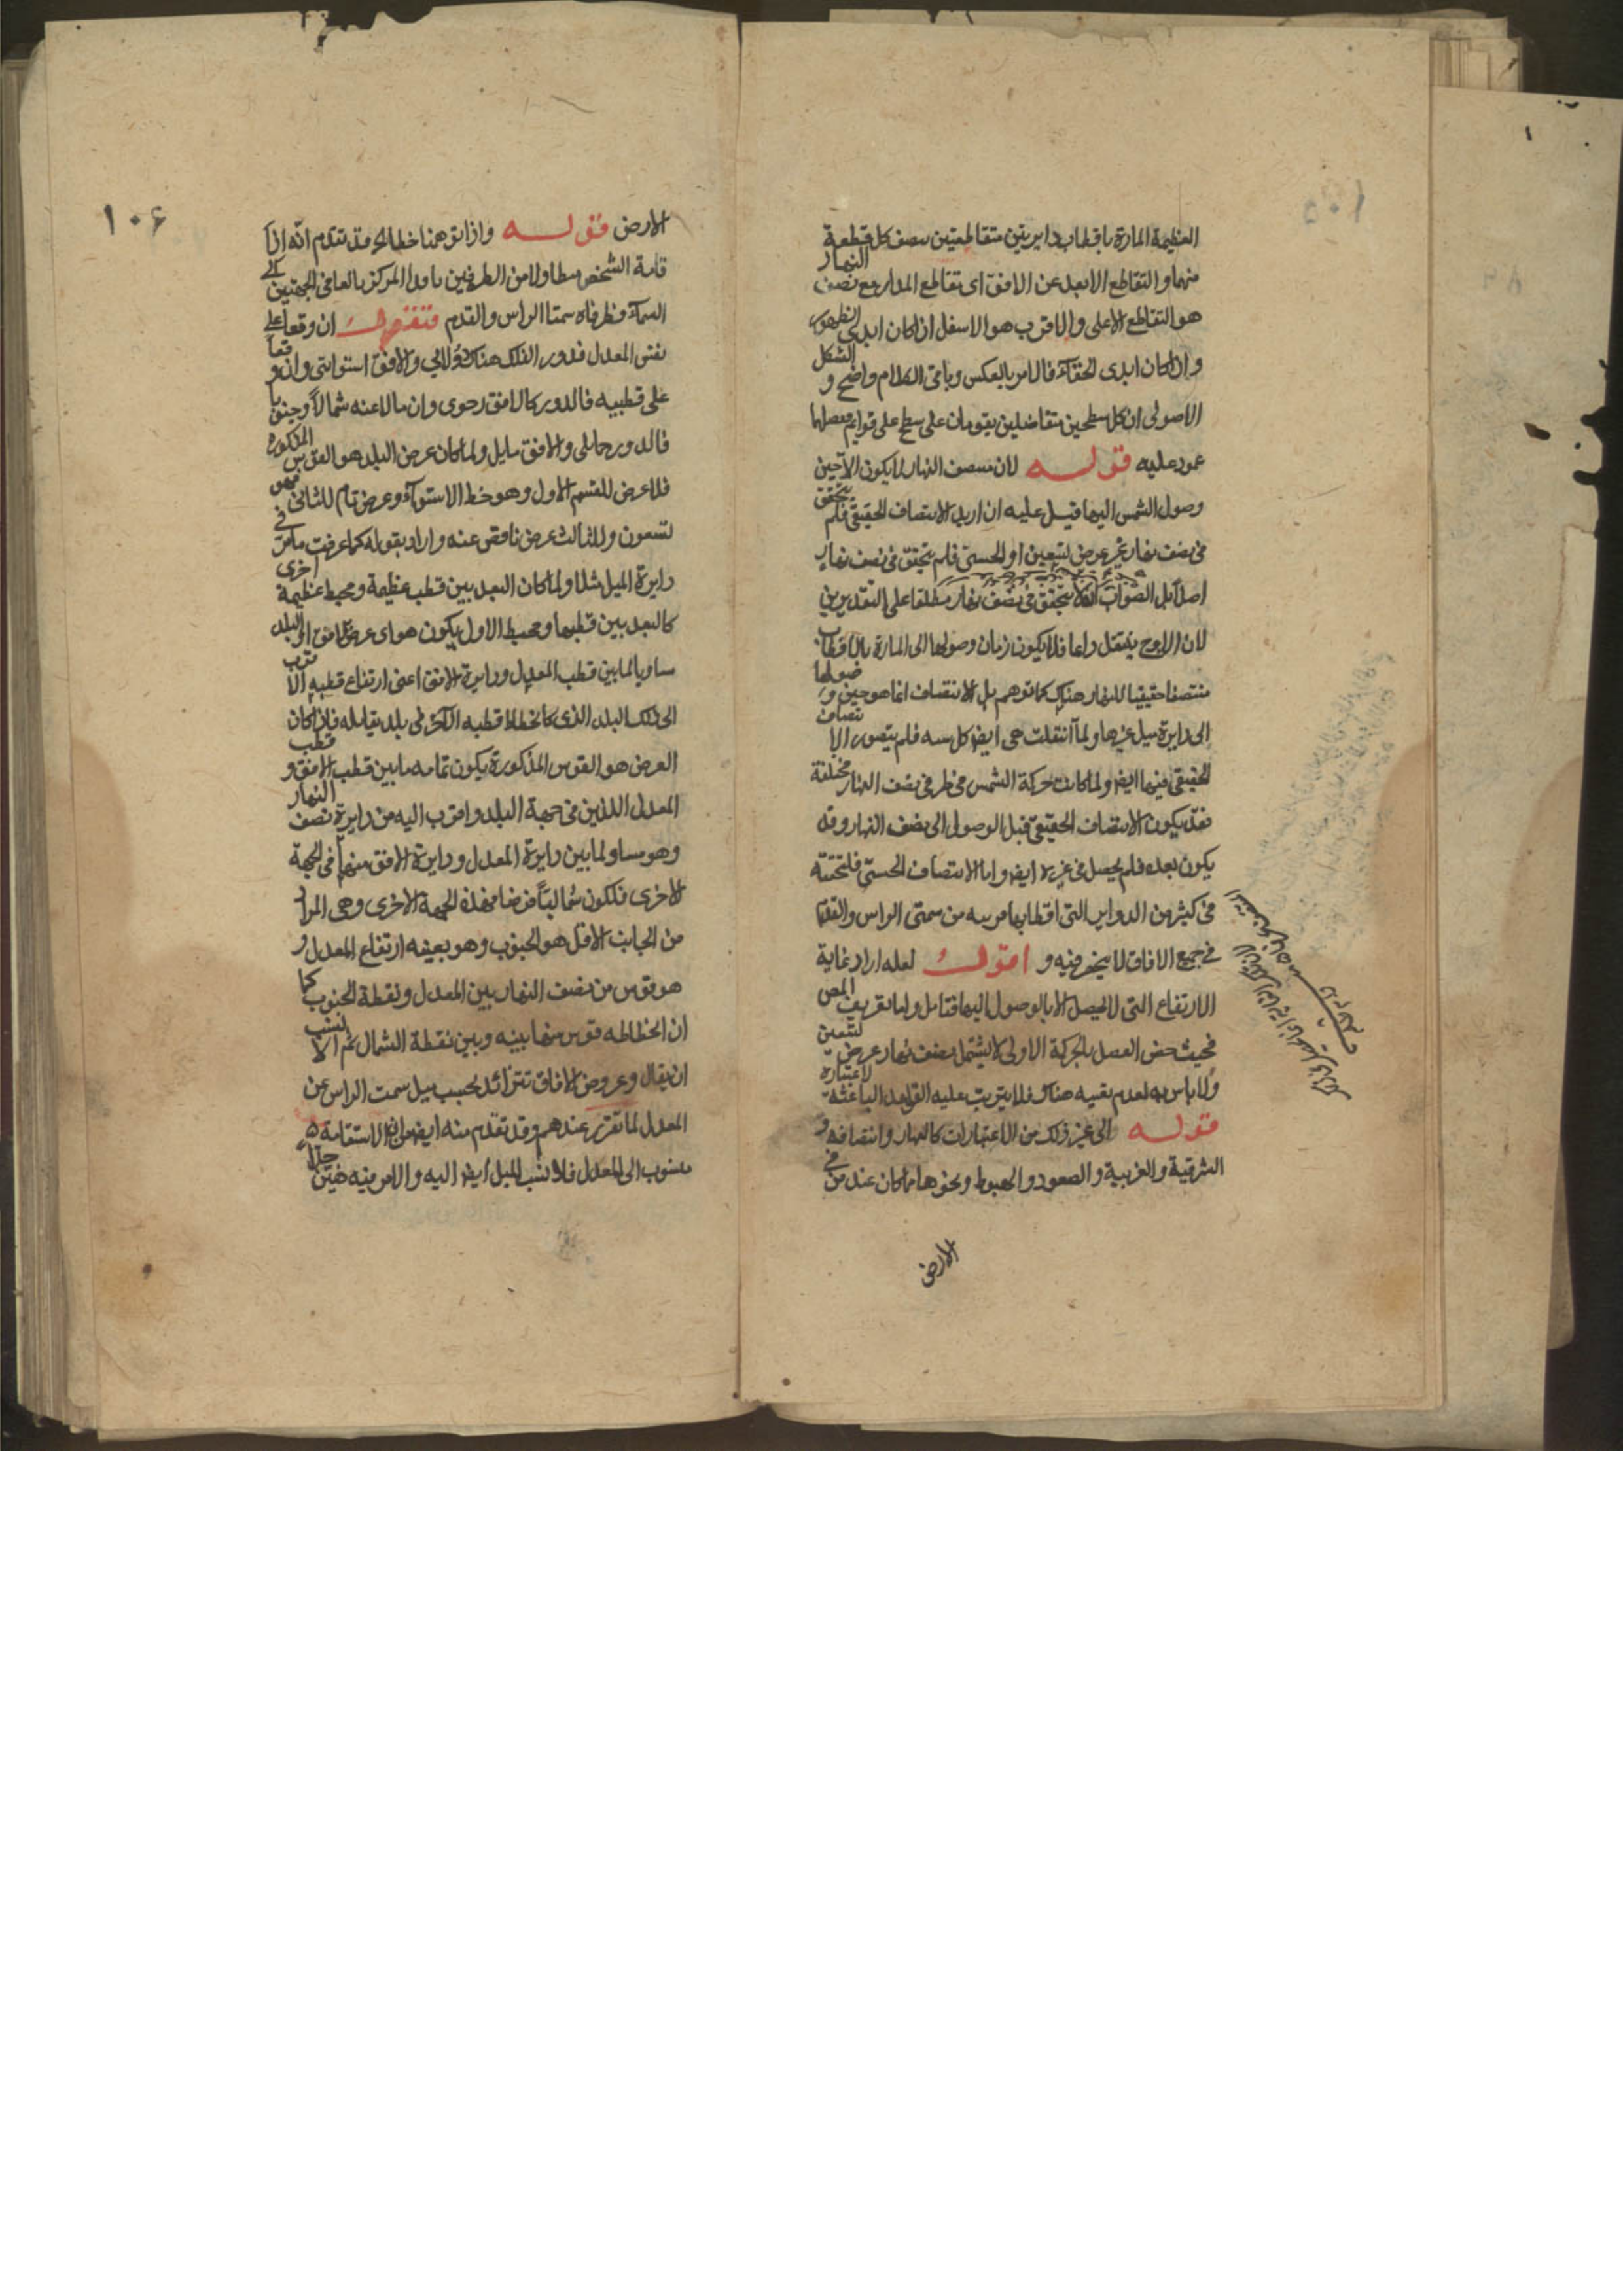 العظيمة المارة باقطاب دايرتين متقاطعتين ىىصف كل قطعة
منهما والتقاطع الابعد عن الافق اى تقاطع المدار مع نصف النهار
هو التقاطع الاعلى والاقرب هو الاسفل ان كان ابدى الظهور
وان كان ابدى الخفآء فالامر بالعكس وباقى الكلام واضح و الشكل
الاصولى ان كل سطحين متقاضلين يقومان على سطح على قوايم ففصلهما
عمود عليه قوله لان منتصف النهار لا يكون الا حين
وصول الشمس اليها قيل عليه ان اريد الانتصاف الحقيقى فلم يتحقق
فى نصف نهار غير عرض تسعين او الحسى فلم يتحقق فى نصف نهار
اصلا بل الصواب انه لا يتحقق فى نصف نهار مطلقا على التقديرين
لان الاوج ينتقل داعا فلا يكون زمان وصولها الى المارة بالاقطاب
منتصفا حقيقيا للنهار هناك كما توهم بل الانتصاف انما هو حين وصولها
الى دايرة ميل غيرها ولما انتقلت هى ايضا كل سنه فلم يتصور الانتصاف
الحقيقى فيهما ايضا ولما كانت حركة الشمس فى طرفى نصف النهار مختلفة
فقد يكون الانتصاف الحقيقى قبل الوصول الى نصف النهار وقد
يكون بعده فلم يحصل فى غيره ايضا واما الانتصاف الحسى فلتحققه
فى كثير من الدواير التى اقطابها قريبه من سمتى الراس والقدم
فى جميع الافاق لا ينحصر فيه و اقول لعله اراد غاية
الارتفاع التى لا يحصل الا بالوصول اليها فتامل واما تعريف المص
فحيث خص الفصل بالحركة الاولى لا يشتمل نصف نهار عرض تسعين
ولا باس به لعدم تعينه هناك فلا يترتب عليه القواعد الباعثة لاعتباره
قوله الى غير ذلك من الاعتبارات كالنهار وانتصافه و
الشرقية والغربية والصعود والهبوط ونحوها مما كان عند من فى
الارض
١٠۶
الارض قوله واذا توهمنا خطا الخ قد تقدم انه اذا
قامة الشخص متطاولا من الطرفين مارا المركز بالغا فى الجهتين الى
السمآء فطرفاه سمتا الراس والقدم فنقول ان وقعا على
نفس المعدل فدور الفلك هناك دولابى والافق استوائى وان وقعا
على قطبيه فالدور كالافق رحوى وان مالا عنه شمالا وجنوبا
فالدور حمائلى والافق مايل ولما كان عرض البلد هو القوس المذكوره
فلا عرض للقسم الاول وهو خط الاستوآء وعرض تام للثانى فهو
تسعون وللثالث عرض ناقص عنه واراد بقوله كما عرفت ما مر فى
دايرة الميل مثلا ولما كان البعد بين قطب عظيمة ومحيط عظيمة اخرى
كالبعد بين قطبها ومحيط الاول يكون هو اى عرض افق البلد
مساويا لما بين قطب المعدل ودايرة الافق اعنى ارتفاع قطبه الاقرب
الى ذلك البلد الذى كانحطاط قطبه الآخر فى بلد يقابله فلذا كان
العرض هو القوس المذكورة يكون تمامه ما بين قطب الافق و قطب
المعدل اللذين فى جهة البلد واقرب اليه من دايرة نصف النهار
وهو مساو لما بين دايرة المعدل ودايرة الافق منها فى الجهة
الاخرى فلكون شماليتا فرضا فهذه الجهة الاخرى وهى المراد
من الجانب الاقل هو الجنوب وهو بعينه ارتفاع المعدل و
هو قوس من نصف النهار بين المعدل ونقطة الجنوب كما
ان انحطاطه قوس منها بينه وبين نقطة الشمال ثم الانسب
ان يقال وعروض الافاق تتزائد بحسب ميل سمت الراس عن
المعدل لما تقرر عندهم وقد تقدم منه ايضا ان الاستقامة
منسوب الى المعدل فلا ينسب الميل ايضا اليه والامر فيه هين جدا